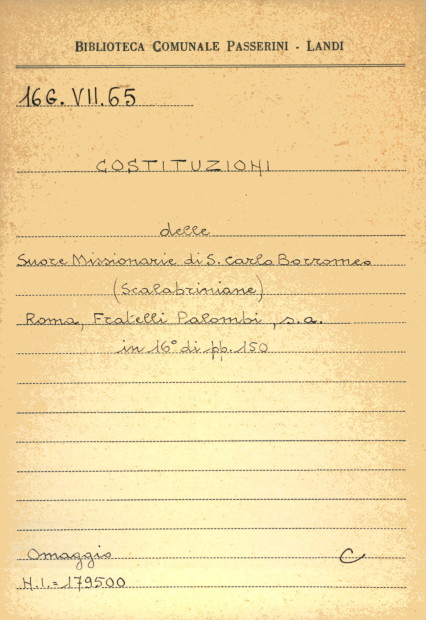 BIBLIOTECA COMUNALE PASSERINI - LANDI
16G. VII. 65
COSTITUZIONI
delle
Suore Missionarie di S. Carlo Borromeo
(Scalabriniane)
Roma, Fratelli Palombi, s.a.
in 16° di pp. 150
Omaggio C
N.I. = 179500